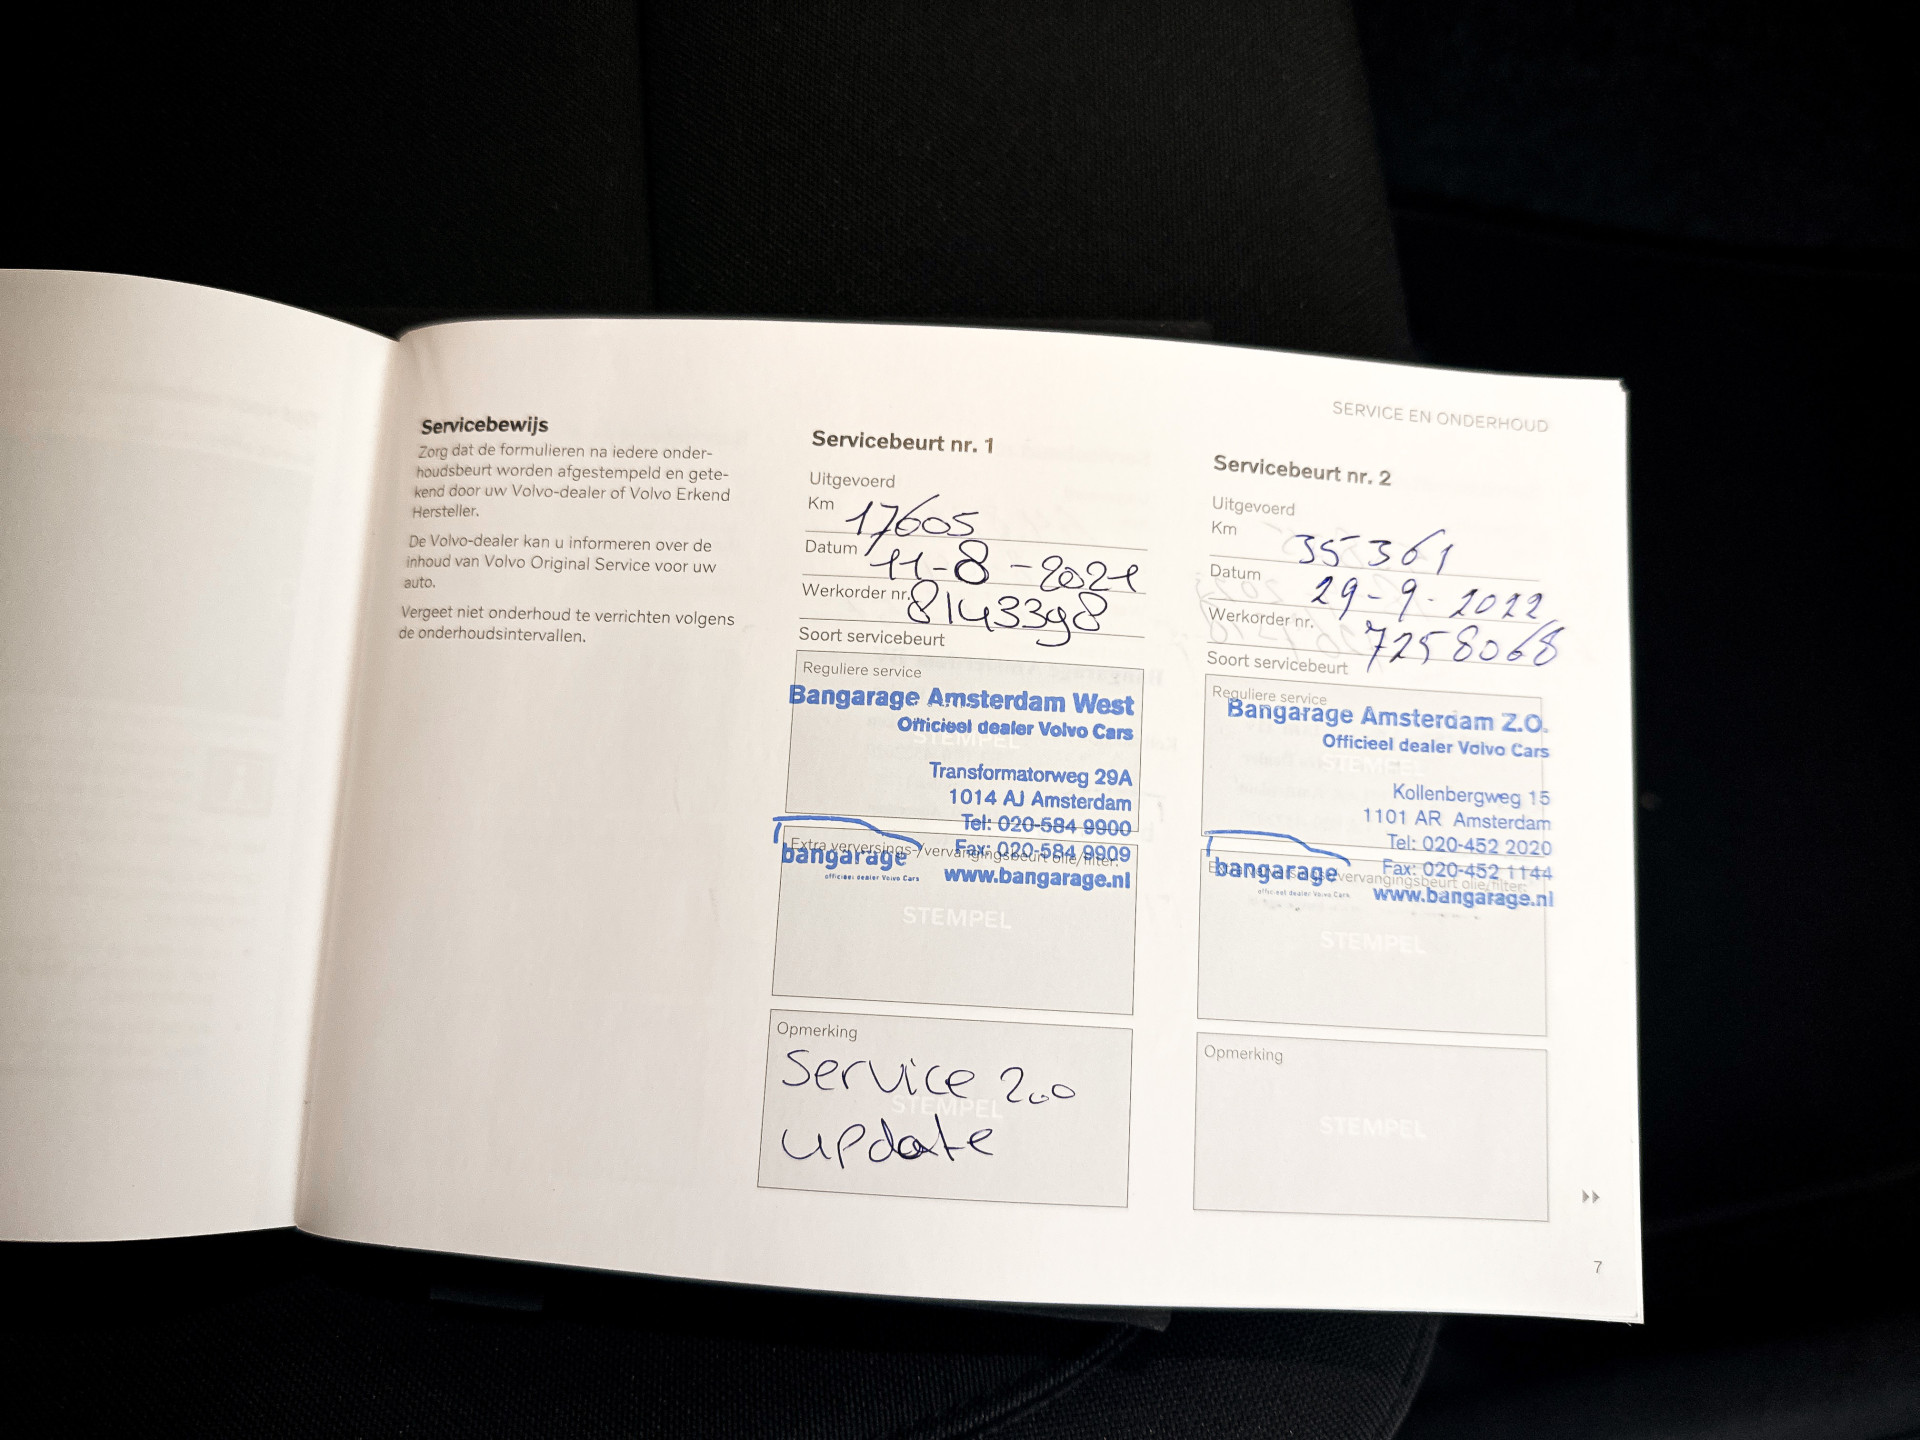 SERVICE EN ONDERHOUD
Servicebewijs
Zorg dat de formulieren na iedere onder-
houdsbeurt worden afgestempeld en gete-
kend door uw Volvo-dealer of Volvo Erkend
Hersteller.
De Volvo-dealer kan u informeren over de
inhoud van Volvo Original Service voor uw
auto.
Vergeet niet onderhoud te verrichten volgens
de onderhoudsintervallen.
Servicebeurt nr. 1
Uitgevoerd
Km 17605
Datum 11-8-2021
Werkorder nr. 8143398
Soort servicebeurt
Reguliere service
Bangarage Amsterdam West
Officieel dealer Volvo Cars
STEMPEL
Transformatorweg 29A
1014 AJ Amsterdam
Tel: 020-584 9900
Extra verversings-/vervangingsbeurt olie/filter:
Fax: 020-584 9909
bangarage
officieel dealer Volvo Cars
www.bangarage.nl
STEMPEL
Opmerking
Service 2.0
STEMPEL
update
Servicebeurt nr. 2
Uitgevoerd
Km 35361
Datum 29-9-2022
Werkorder nr. 7258068
Soort servicebeurt
Reguliere service
Bangarage Amsterdam Z.O.
Officieel dealer Volvo Cars
STEMPEL
Kollenbergweg 15
1101 AR Amsterdam
Tel: 020-452 2020
Fax: 020-452 1144
vervangingsbeurt olie/filter:
bangarage
officieel dealer Volvo Cars
www.bangarage.nl
STEMPEL
Opmerking
STEMPEL
7